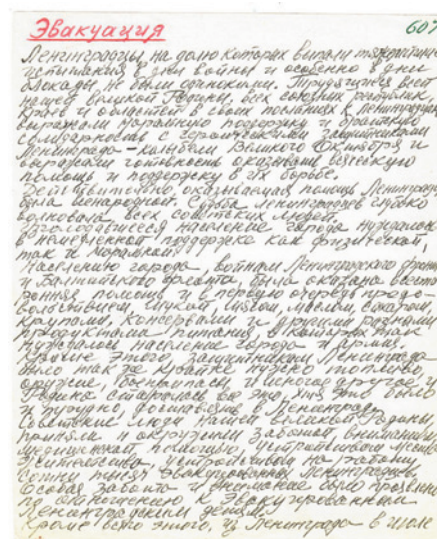 Эвакуация 607
Ленинградцы, на долю которых выпали тягчайшие
испытания в дни войны и особенно в дни
блокады, не были одинокими. Трудящиеся всей
нашей великой Родины, всех союзных республик,
краев и областей в своих письмах к Ленинградцам
выражали братскую
солидарность с героическими защитниками
Ленинграда - колыбели Великого Октября и
выражали готовность оказывать всяческую
помощь и поддержку в их борьбе.
Действительно, оказываемая помощь Ленинграду
была всенародной. Судьба ленинградцев глубоко
волновала всех советских людей.
Изголодавшееся население города нуждалось
в немедленной поддержке как физической,
так и моральной.
Населению города, воинам Ленинградского фронта
и Балтийского флота, была оказана всесто-
ронняя помощь и в первую очередь продо-
вольствием, мукой, мясом, маслом, сахаром,
крупами, консервами и другими разными
продуктами питания, в которых так
нуждалось население города и армия.
Кроме этого, защитникам Ленинграда
было так же крайне нужно топливо,
оружие, боеприпасы и многое другое и
Родина старалась все это, хотя это было
и трудно, доставлять в Ленинград.
Советские люди нашей великой Родины,
приняли и окружили заботой, вниманием,
медицинской помощью, устройством места
жительства, устройством на работу
сотни тысяч эвакуированных ленинградцев.
Особая забота и внимание было проявлено
по отношению к эвакуированным
Ленинградским детям.
Кроме всего этого, из Ленинграда в июле